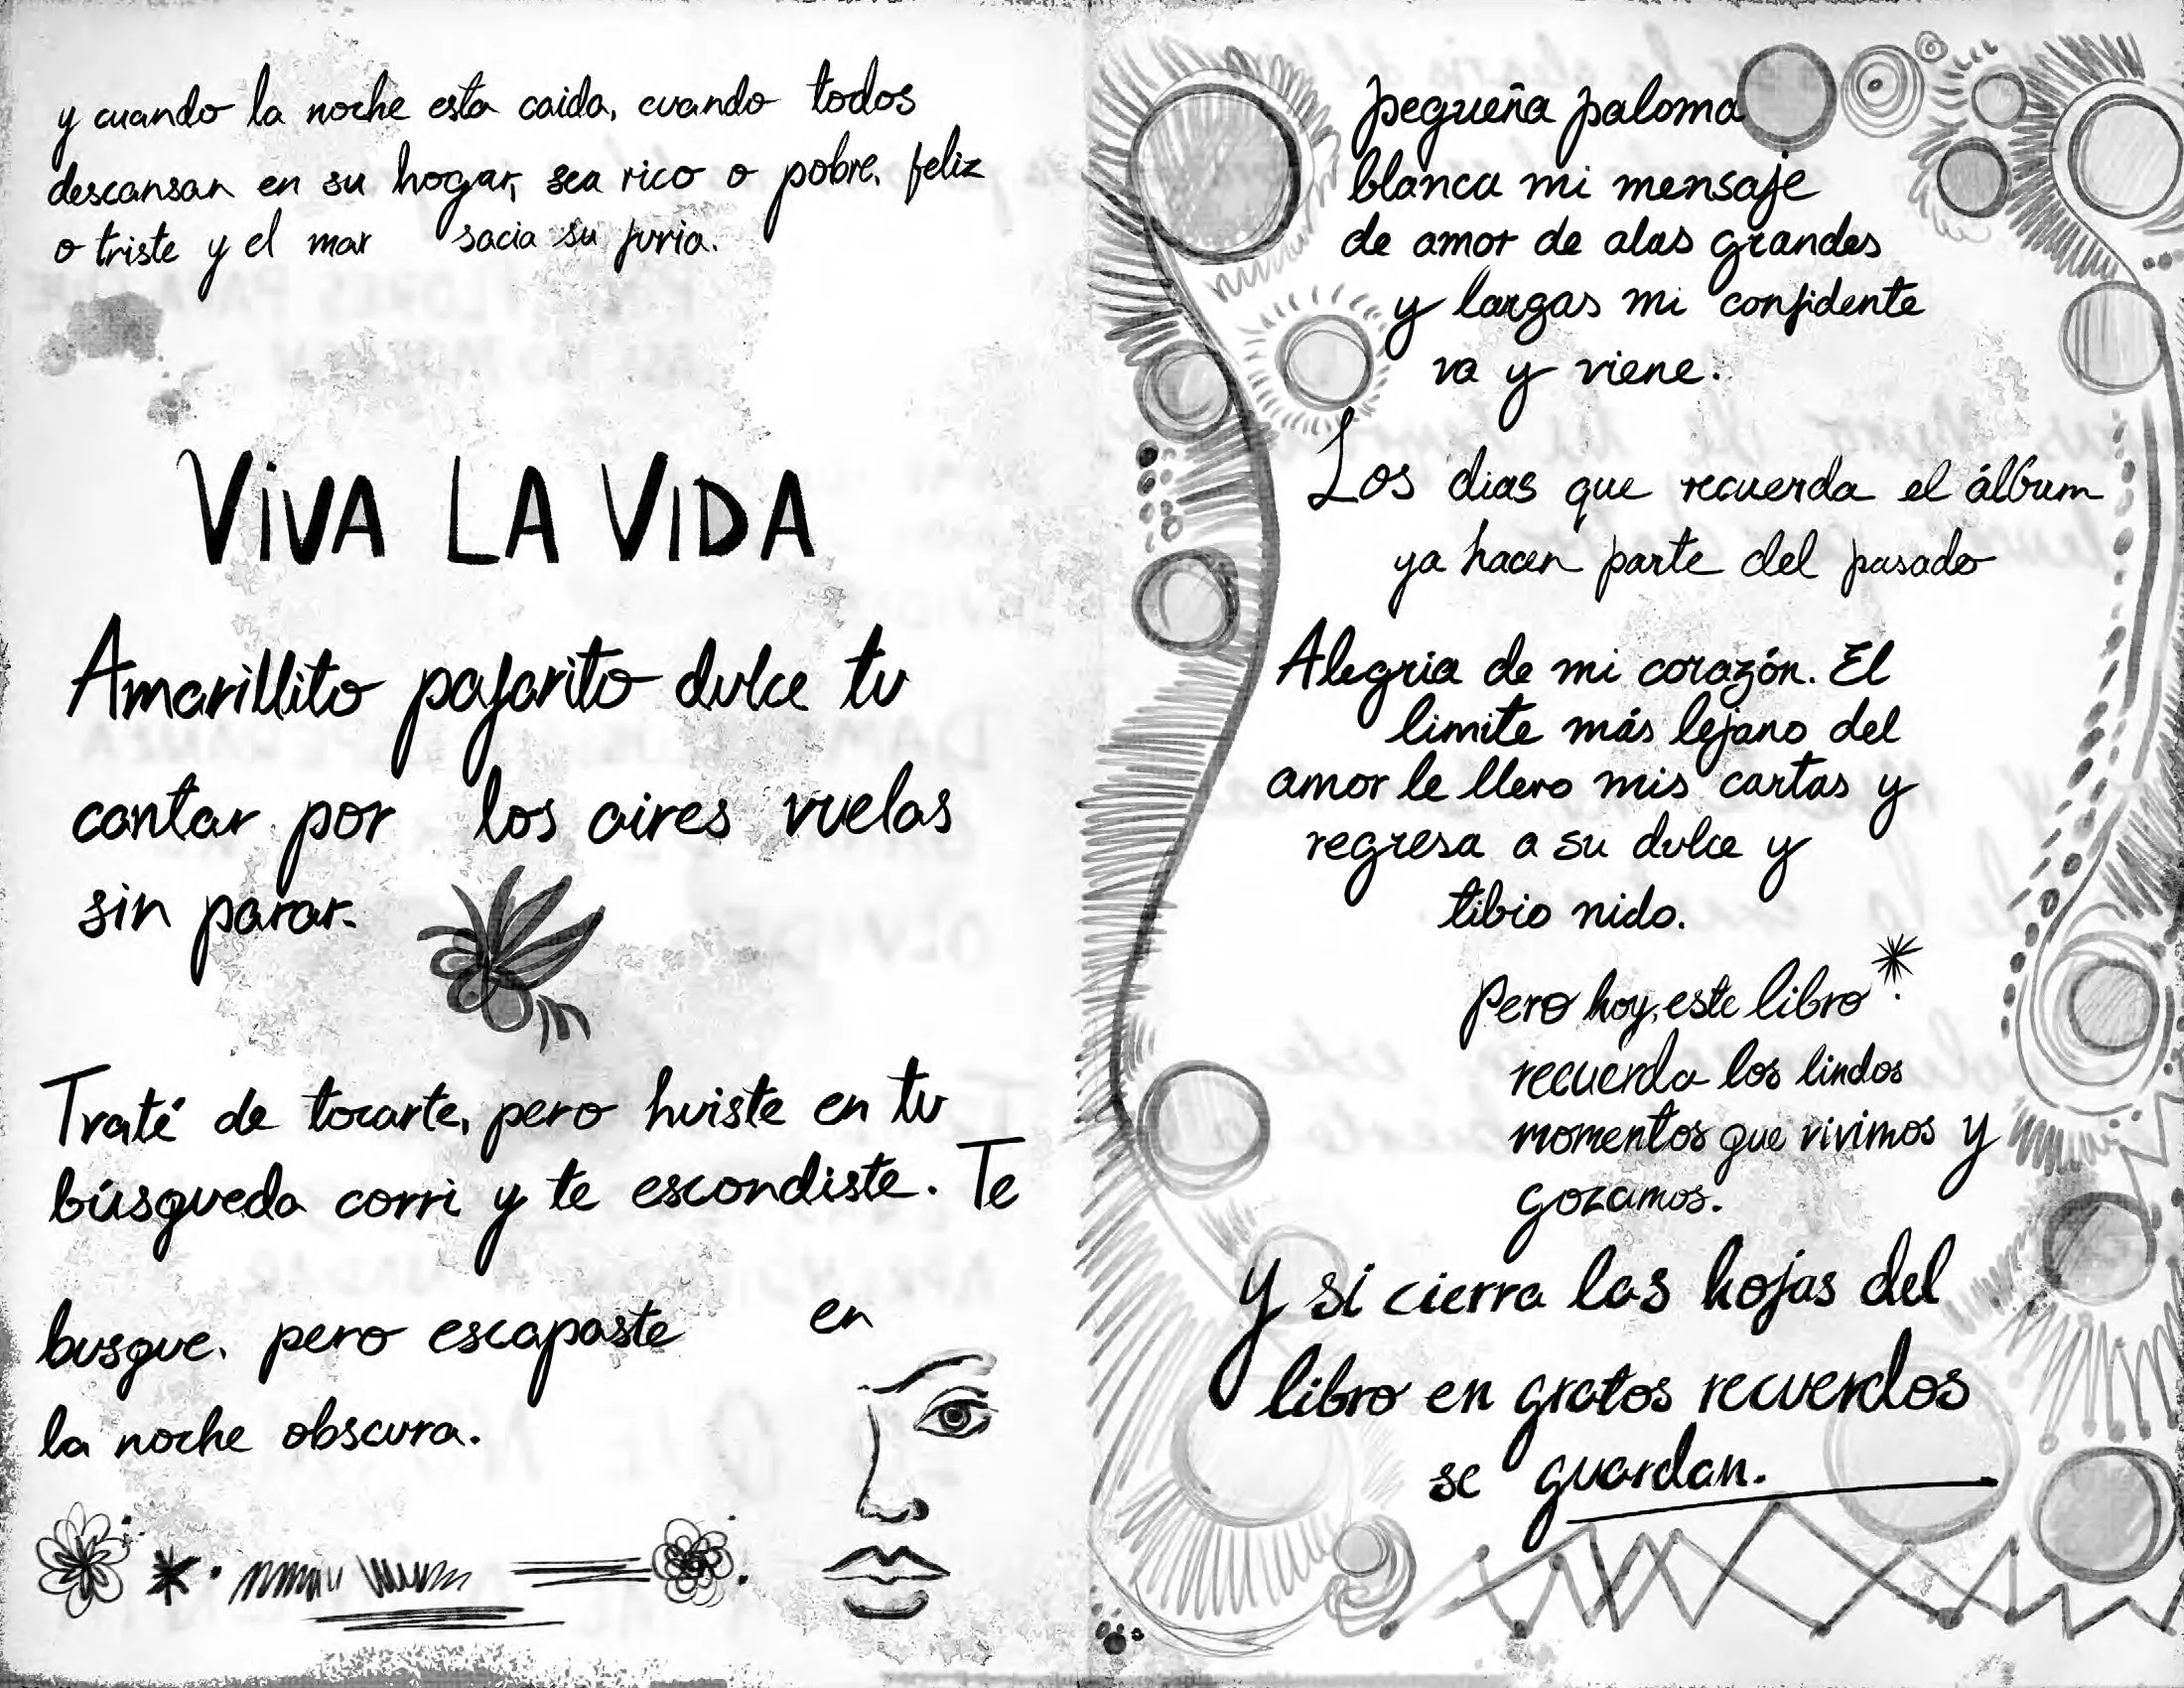 y cuando la noche esta caida, cuando todos
descansan en su hogar, sea rico o pobre, feliz
o triste y el mar sacia su furia.
ViVA LA VIDA
Amarillito pajarito dulce tu
cantar por los aires vuelas
sin parar.
Traté de tocarte, pero huiste en tu
búsqueda corri y te escondiste. Te
busque, pero escapaste en
la noche obscura.
pequeña paloma
blanca mi mensaje
de amor de alas grandes
y largas mi confidente
va y viene.
Los dias que recuerda el álbum
ya hacen parte del pasado
Alegria de mi corazón. El
limite más lejano del
amor le llevo mis cartas y
regresa a su dulce y
tibio nido.
Pero hoy, este libro
recuerda los lindos
momentos que vivimos y
gozamos.
Y si cierra las hojas del
libro en gratos recuerdos
se guardan.